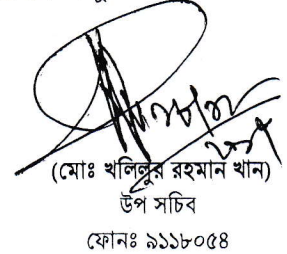 (মোঃ খলিলুর রহমান খান)
উপ সচিব
ফোনঃ ৯১১৮০৫৪